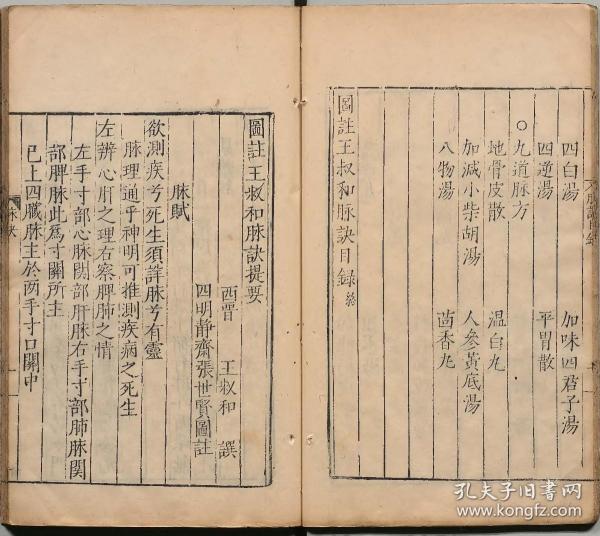 四白湯 加味四君子湯
四逆湯 平胃散
○九道脉方
地骨皮散 温白丸
加減小柴胡湯 人參黃底湯
八物湯 茴香丸
圖註王叔和脉訣目錄終
圖註王叔和脉訣提要
西晉 王叔和 譔
四明靜齋張世賢圖註
脉賦
欲測疾兮死生須詳脉兮有靈
脉理通乎神明可推測疾病之死生
左辨心肝之理右察脾肺之情
左手寸部心脉関部肝脉右手寸部肺脉関
部脾脉此爲寸關所主
已上四臟脉主於两手寸口關中
脉訣
一
孔夫子旧书网
www.kongfz.com